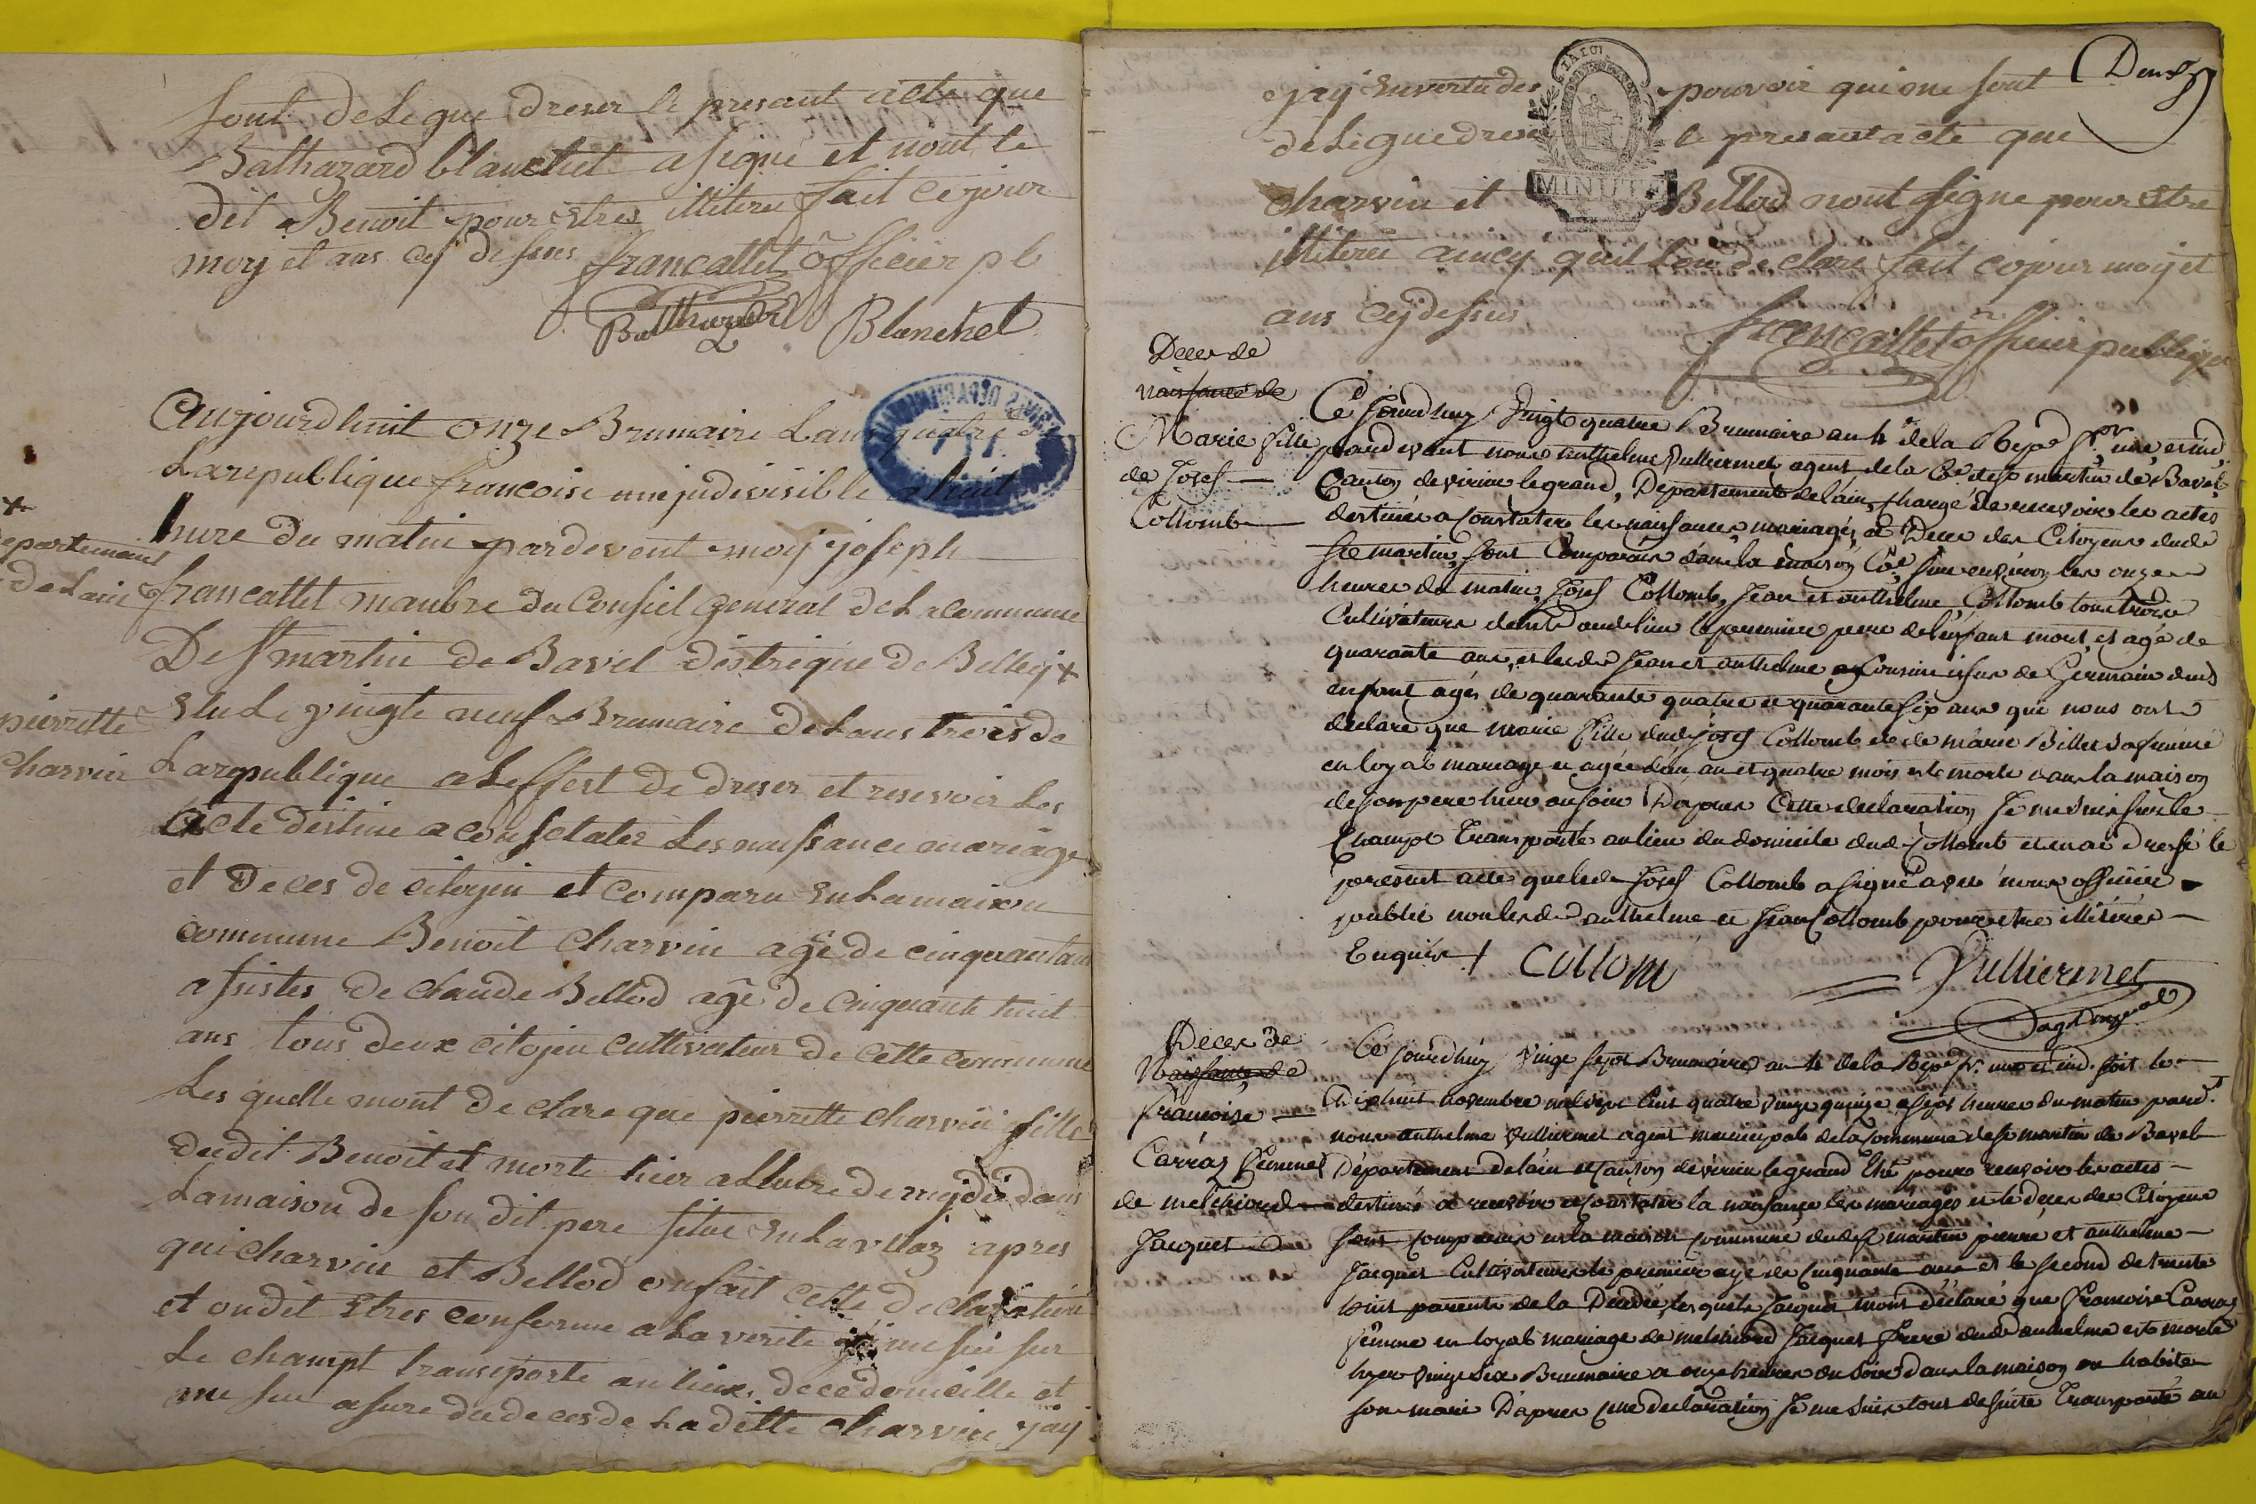 font deLegue dreser le presant acte que
Balthazard blanchet a signé et nont le
dit Benoit pour estres illitere fait ce jour
moy et ans cy dessus francallet officier pb
Balthazard Blanchet
Aujourdhuit onze Brumaire Lans quatre de
La republique francoise une judivisible a huit
hure du matin pardevent moy joseph
francallet manbre du Consiel general de La commune
De st martin de Bavel distrique de Belley +
+ departement de Lain
Elu Le vingte neuf Brumaire de Lans trois de
pierrette charvin
La republique a Leffest de dreser et resevoir Les
acte destine a consctater Les naissance mariage
et Deces de citoyen et comparu en La maison
commune Benoit Charvin agé de cinquantans
assistes de claude Bellod agé de cinquante huit
ans tous deux citojen cultivateur de cette commune
Les quelle mont de clare que pierrette charvin fille
dudit Benoit et morte hier a L'hure de mydis dans
La maison de son dit pere situé en La vellaz apres
qui charvin et Bellod on fait cette de claration
et on dit estres conforme a La verite je me sui sur
Le champt transporte au lieux de ce domicille et
me sui asure du deces de La ditte charvin j'ay
Deux
j'ay en vertu des pouvoir qui me sont
de Legue dresé le presant acte que
MINUTE
charvin et Bellod nont signe pour Etre
illitere aincy quil lon de clare fait ce jour moy et
ans cy dessus
francallet officier publique
Deces de
naissance de
Marie fille
de Josef
Collomb
Ce Jourdhuy Vingt quatre Brumaire an 4e de la Repe fr. une et ind.
pardevant nous anthelme Vulliermet agent de la Ce de st martin de Bavel
Canton de virieu le grand, Departement de lain, chargé de recevoir les actes
destinés a Constater les naissances, mariages, et Deces des Citoyens dud.
St martin, sont Comparus dans la maison Cne sur environ les onze
heures du matin, Josef Collomb, Jean et anthelme Collomb tous trois
Cultivateurs dud. lieu le premier pere de l'enfant mort, et agé de
quarante ans, et lesd. Jean et anthelme Cousins issus de Germain dud.
enfant agés de quarante quatre et quarante six ans qui nous ont
declaré que marie fille dud. Josef Collomb et de marie Billet sa femme
en loyal mariage et agée d'un an et quatre mois est morte dans la maison
de son pere hier au soir Dapres Cette declaration Je me suis sur le
Champt Transporté au lieu du domicile dud. Collomb et en ai dressé le
present acte que led. Josef Collomb a signé avec nous officier
public non lesd. anthelme et Jean Collomb pour etre illitérés
Enquis + Collom Vulliermet
Deces de
Naissance de
francoise
Carraz femme
de melchiord
Jacquet
Ce Jourdhuy vingt sept Brumaire an 4e de la Repe fr. une et ind. soit le
Dix huit novembre mil sept Cent quatre vingt quinze a sept heures du matin pard.t
nous anthelme Vulliermet agent municipal de la Commune de st martin de Bavel
Département de lain et Canton de virieu le grand Elu pour recevoir les actes
destinés a recevoir et Constater la naissance les mariages et le deces des Citoyens
sont comparus en la maison commune dud. st martin pierre et anthelme
Jacquet Cultivateurs le premier agé de cinquante ans et le second de trente
huit parents de la Decedée, lesquels Jacquet m'ont déclaré que francoise Carraz
femme en loyal mariage de melchiord Jacquet frere dud. anthelme est morte
hyer vingt six Brumaire a onze heures du soir dans la maison ou habite
son mari Dapres cette declaration Je me suis tout de suite Transporté au